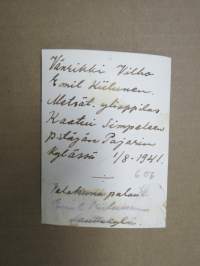 Vänrikki Vilho
Emil Kiilunen.
Metsät. ylioppilas
Kaatui Simpeleen
pitäjän Pajarin
kylässä 1/8-1941.
606
Valokuva palaut.
Emil